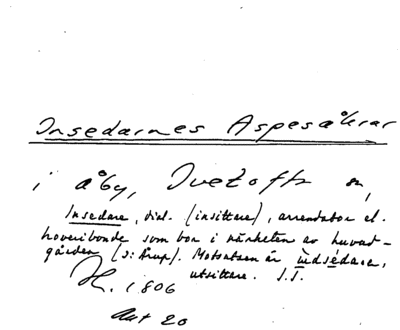 Insedarnes Aspesåkrar
i Åby, Tvetofta sn,
Insedare, dial. (insittare), arrendator el.
hoveribonde som bor i närheten av huvud-
gården (s: Årup). Motsatsen är utsedare,
utsittare. I.I.
H. 1806
Akt 20